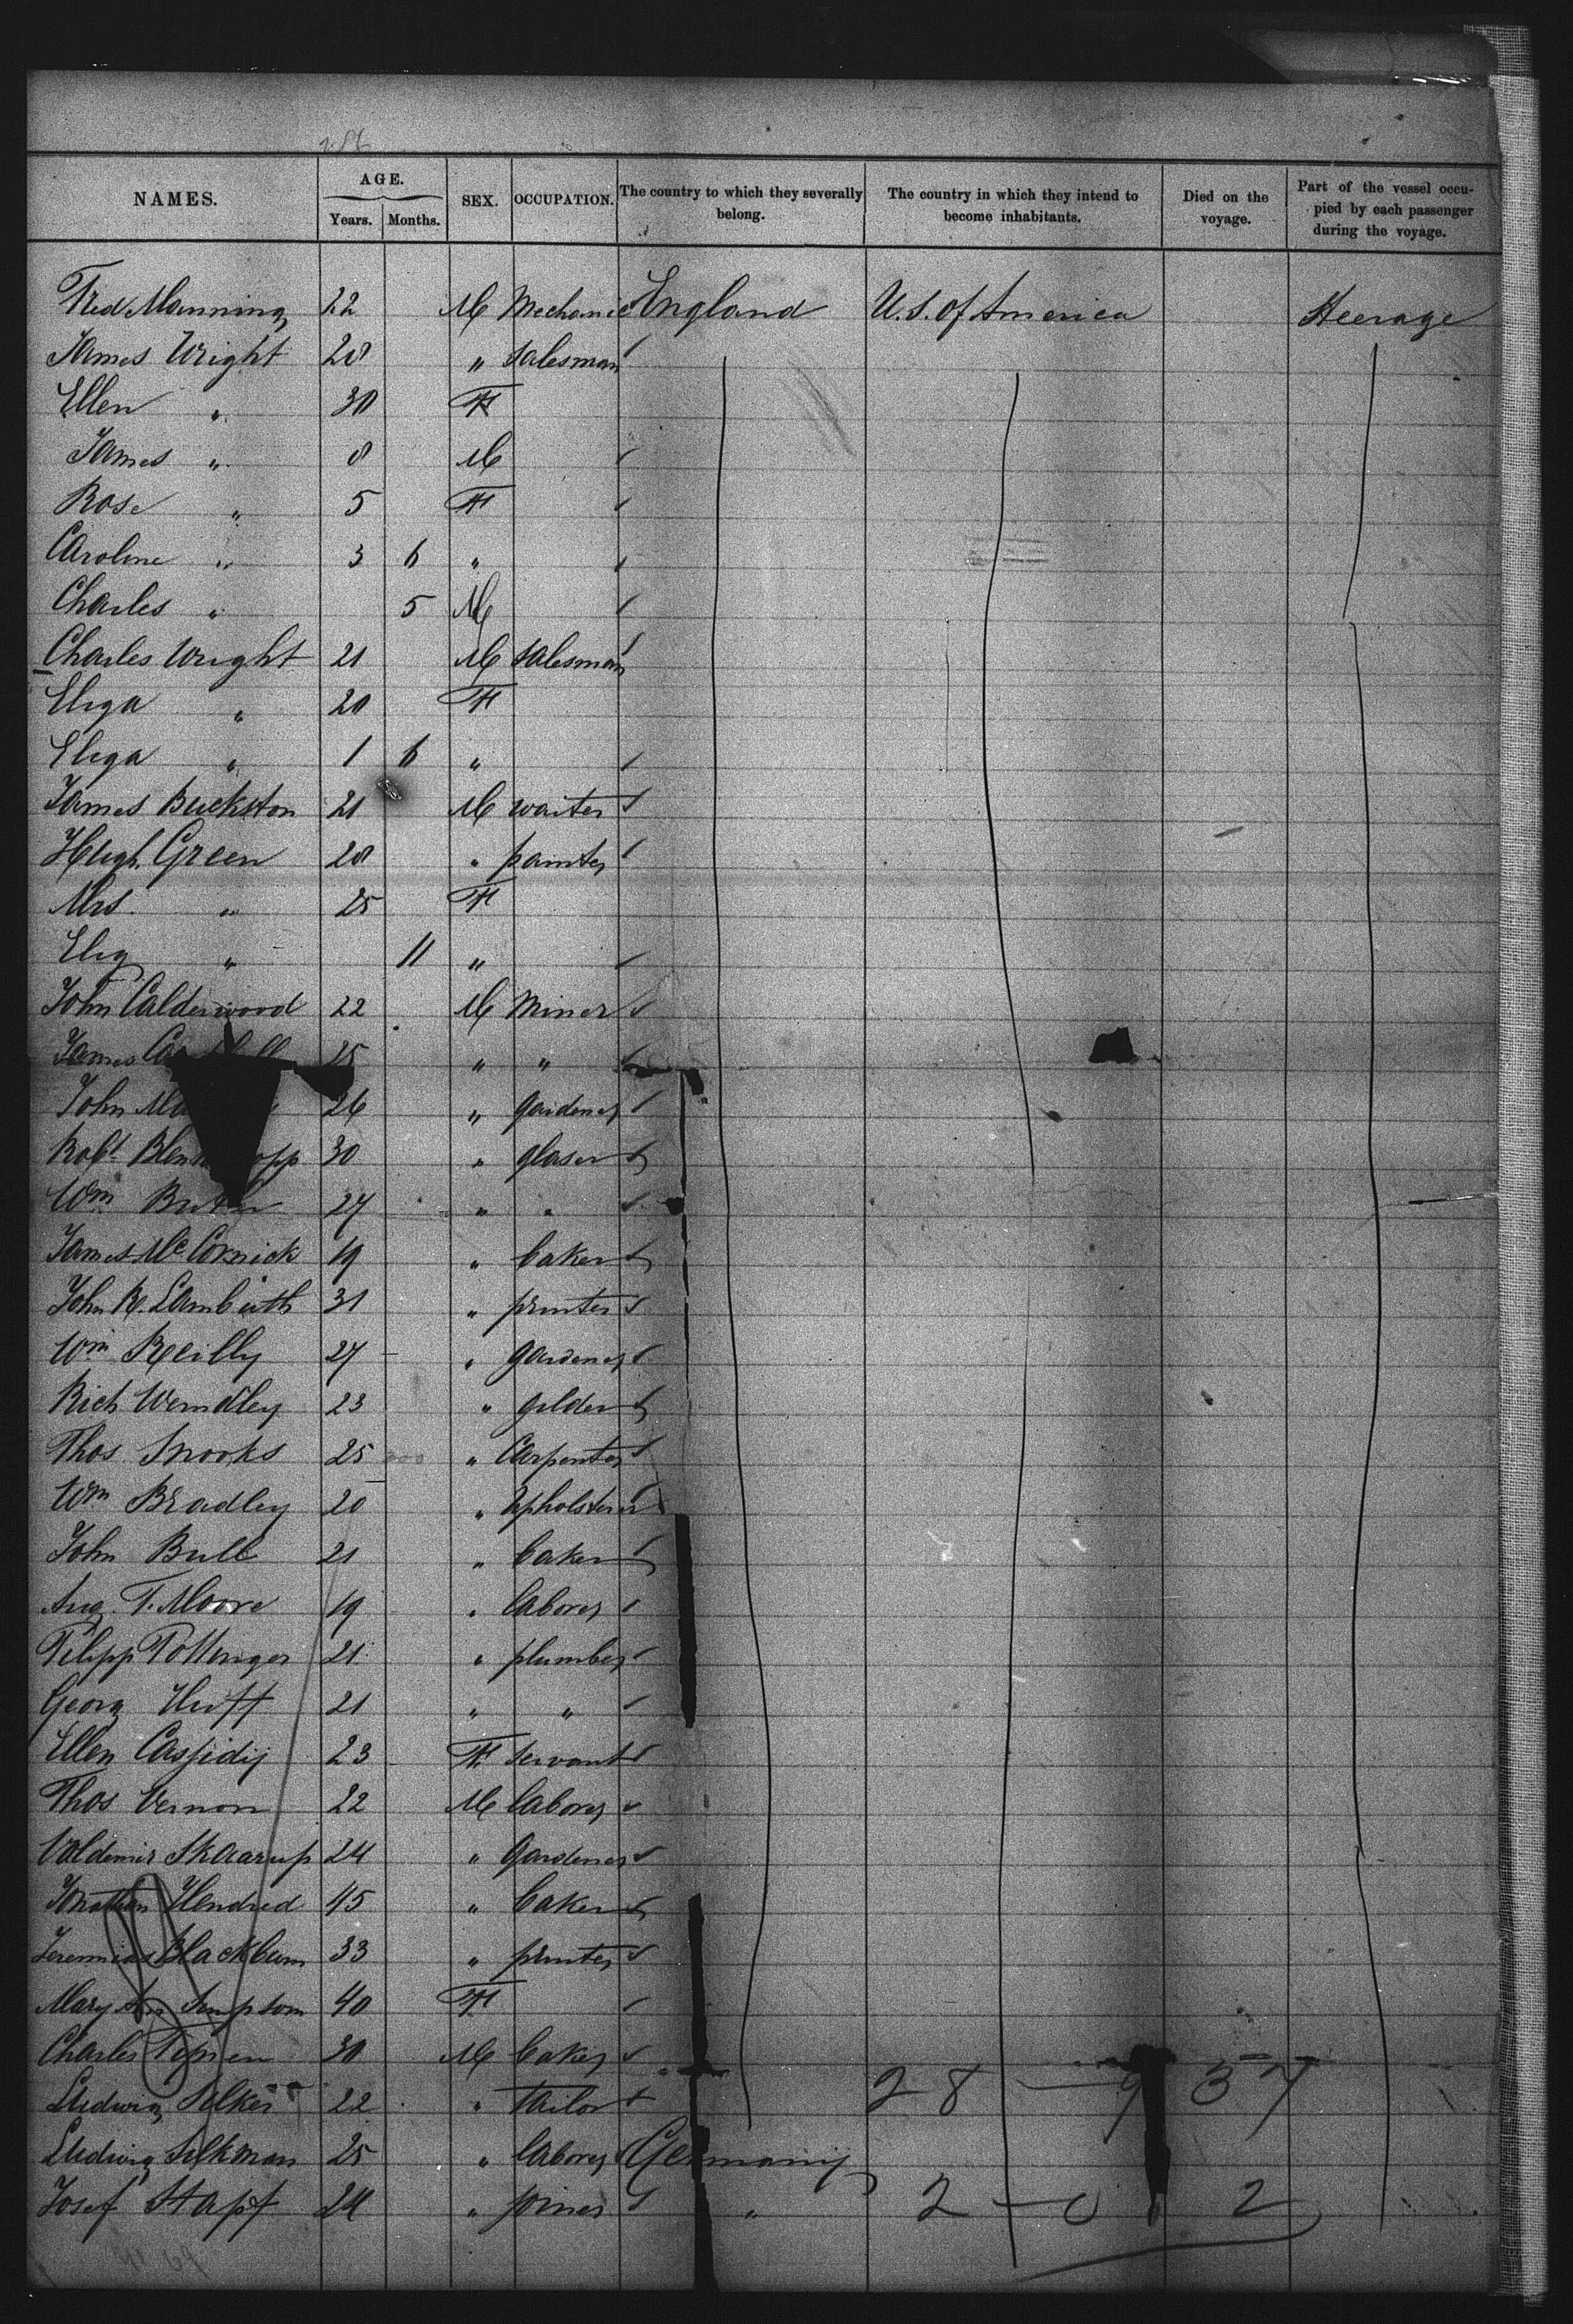 NAMES. AGE. Years. Months. SEX. OCCUPATION. The country to which they severally belong. The country in which they intend to become inhabitants. Died on the voyage. Part of the vessel occupied by each passenger during the voyage.
Fred Manning 22 M Mechanic England U.S. of America Steerage
James Wright 28 " Salesman
Ellen " 30 F
James " 8 M
Rose " 5 F
Caroline " 3 6 "
Charles " 5 M
Charles Wright 21 M Salesman
Eliza " 20 F
Eliza " 1 6 "
James Buckston 21 M waiter
Hugh Green 28 " painter
Mrs. " 25 F
Eliz " 11 "
John Calderwood 22 M Miner
James 25 " "
John 26 " gardener
Robt 30 " glaser
Wm 27 " "
James McCornick 19 " baker
John R. Lambuth 31 " printer
Wm Reilly 27 " gardener
Rich Werndley 23 " gilder
Thos Snooks 25 " Carpenter
Wm Bradley 20 " Upholsterer
John Bull 21 " baker
Aug. T. Moore 19 " laborer
Filipp Pottinger 21 " plumber
Georg Huff 21 " "
Ellen Cassidy 23 F servant
Thos Vernon 22 M laborer
Valdemir Skaarup 24 " gardener
Jonathan Hendred 45 " baker
Jeremias Blackburn 33 " printer
Mary Ann Simpson 40 F
Charles 30 M baker
Ludwig 22 " tailor 28 — 9 37
Ludwig Silkman 25 " laborer Germany
Josef Stapf 24 " joiner " 2 — 0 2